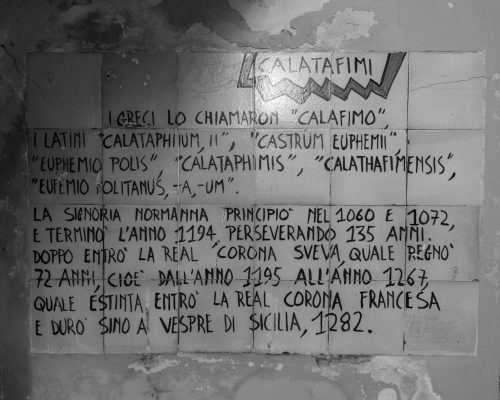 CALATAFIMI
I GRECI LO CHIAMARON "CALAFIMO",
I LATINI "CALATAPHIIUM, II", "CASTRUM EUPHEMII",
"EUPHEMIO POLIS", "CALATAPHIMIS", "CALATHAFIMENSIS",
"EUFEMIO POLITANUS, -A, -UM".
LA SIGNORIA NORMANNA PRINCIPIO' NEL 1060 E 1072,
E TERMINO' L'ANNO 1194, PERSEVERANDO 135 ANNI.
DOPPO ENTRO' LA REAL CORONA SVEVA, QUALE REGNO'
72 ANNI, CIOÈ DALL'ANNO 1195 ALL'ANNO 1267,
QUALE ESTINTA ENTRO' LA REAL CORONA FRANCESA
E DURO' SINO A VESPRE DI SICILIA, 1282.